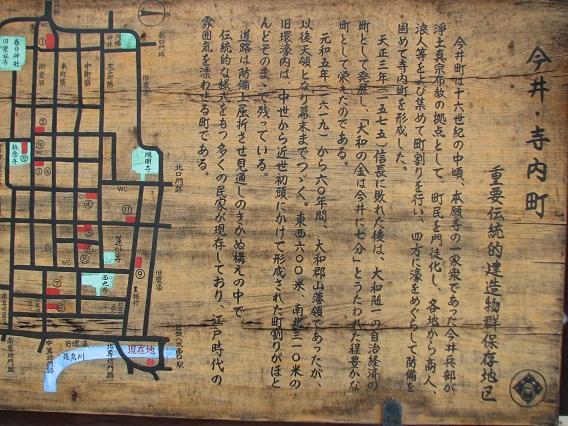 今井・寺内町
重要伝統的建造物群保存地区
今井町は十六世紀の中頃、本願寺の一家衆であった今井兵部が
浄土真宗布教の拠点として、町民を門徒化し、各地から商人、
浪人等をよび集めて町割りを行い、四方に濠をめぐらして防備を
固めて寺内町を形成した。
天正三年(一五七五)信長に敗れた後は、大和随一の自治経済の
町として発展し、「大和の金は今井に七分」とうたわれた程豊かな
町として栄えたのである。
元和五年(一六一九)から六〇年間、大和郡山藩領であったが、
以後天領となり幕末までつづく。東西六〇〇米、南北三一〇米の
旧環濠内は、中世から近世初頭にかけて形成された町割りがほと
んどそのまゝで残っている。
道路は防備上屈折させ見通しのきかぬ構えの中で、
伝統的な様式をもつ多くの民家が現存しており、江戸時代の
雰囲気を漂わせる町である。
春日神社
八幡神社
本町筋
中町筋
大工町筋
旧環濠
称念寺
順明寺
北口門跡
WC
WC
西光寺
旧環濠
飛鳥川
現在地
近鉄八木西口駅